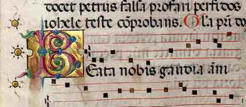 docet petrus falsa prosani perfidos
iohele teste coprobans. Ola pa do
Beata nobis gaudia ani